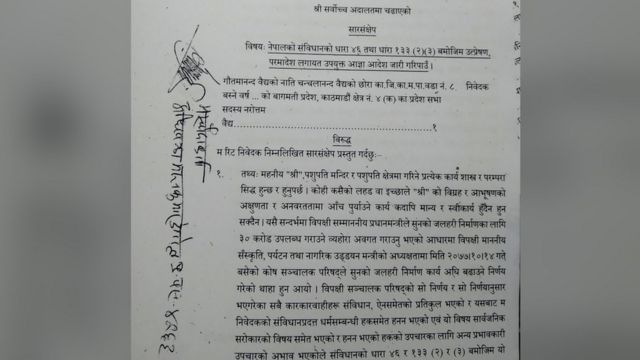 श्री सर्वोच्च अदालतमा चढाएको
सारसंक्षेप
विषय: नेपालको संविधानको धारा ४६ तथा धारा १३३ (२)(३) बमोजिम उत्प्रेषण,
परमादेश लगायत उपयुक्त आज्ञा आदेश जारी गरिपाउँ ।
गौतमानन्द वैद्यको नाति चन्चलानन्द वैद्यको छोरा का.जि.का.म.पा.वडा नं. ८ निवेदक
बस्ने वर्ष ... को बागमती प्रदेश, काठमाडौं क्षेत्र नं. ४ (क) का प्रदेश सभा
सदस्य नरोत्तम
वैद्य.......................................................१
विरुद्ध
म रिट निवेदक निम्नलिखित सारसंक्षेप प्रस्तुत गर्दछु:-
१. तथ्य: महनीय "श्री",पशुपति मन्दिर र पशुपति क्षेत्रमा गरिने प्रत्येक कार्य शास्त्र र परम्परा
सिद्ध हुन्छ र हुनुपर्छ । कोही कसैको लहड वा इच्छाले "श्री" को विग्रह र आभूषणको
अक्षुणता र अनवरततामा आँच पुर्याउने कार्य कदापि मान्य र स्वीकार्य हुँदैन हुन
सक्दैन। यसै सन्दर्भमा विपक्षी सम्माननीय प्रधानमन्त्रीले सुनको जलहरी निर्माणका लागि
३० करोड उपलब्ध गराउने व्यहोरा अवगत गराउनु भएको आधारमा विपक्षी माननीय
सँस्कृति, पर्यटन तथा नागरिक उड्डयन मन्त्रीको अध्यक्षतामा मिति २०७७।१०।१४ गते
बसेको कोष सञ्चालक परिषद्ले सुनको जलहरी निर्माण कार्य अघि बढाउने निर्णय
गरेको थाहा हुन आयो । विपक्षी सञ्चालक परिषद्को सो निर्णय र सो निर्णयानुसार
भएगरेका सबै कारकारवाहीहरू संविधान, ऐनसमेतको प्रतिकुल भएको र यसबाट म
निवेदकको संविधानप्रदत्त धर्मसम्बन्धी हकसमेत हनन भएको एवं यो विषय सार्वजनिक
सरोकारको विषय समेत भएको र हनन भएको हकको उपचारका लागि अन्य प्रभावकारी
उपचारको अभाव भएकोले संविधानको धारा ४६ र १३३ (२) र (३) बमोजिम यो